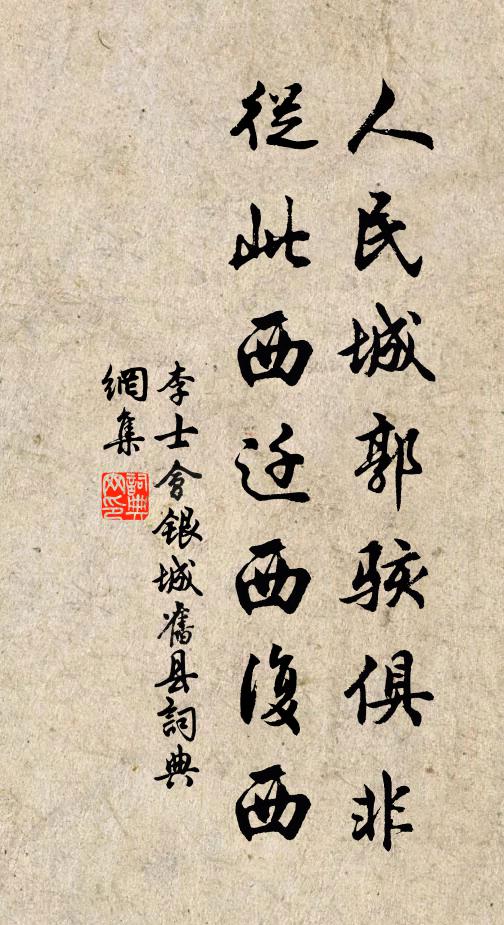 人民城郭駭俱非
從此西迁西復西
李士會銀城舊县詞典
網集
詞典
网印